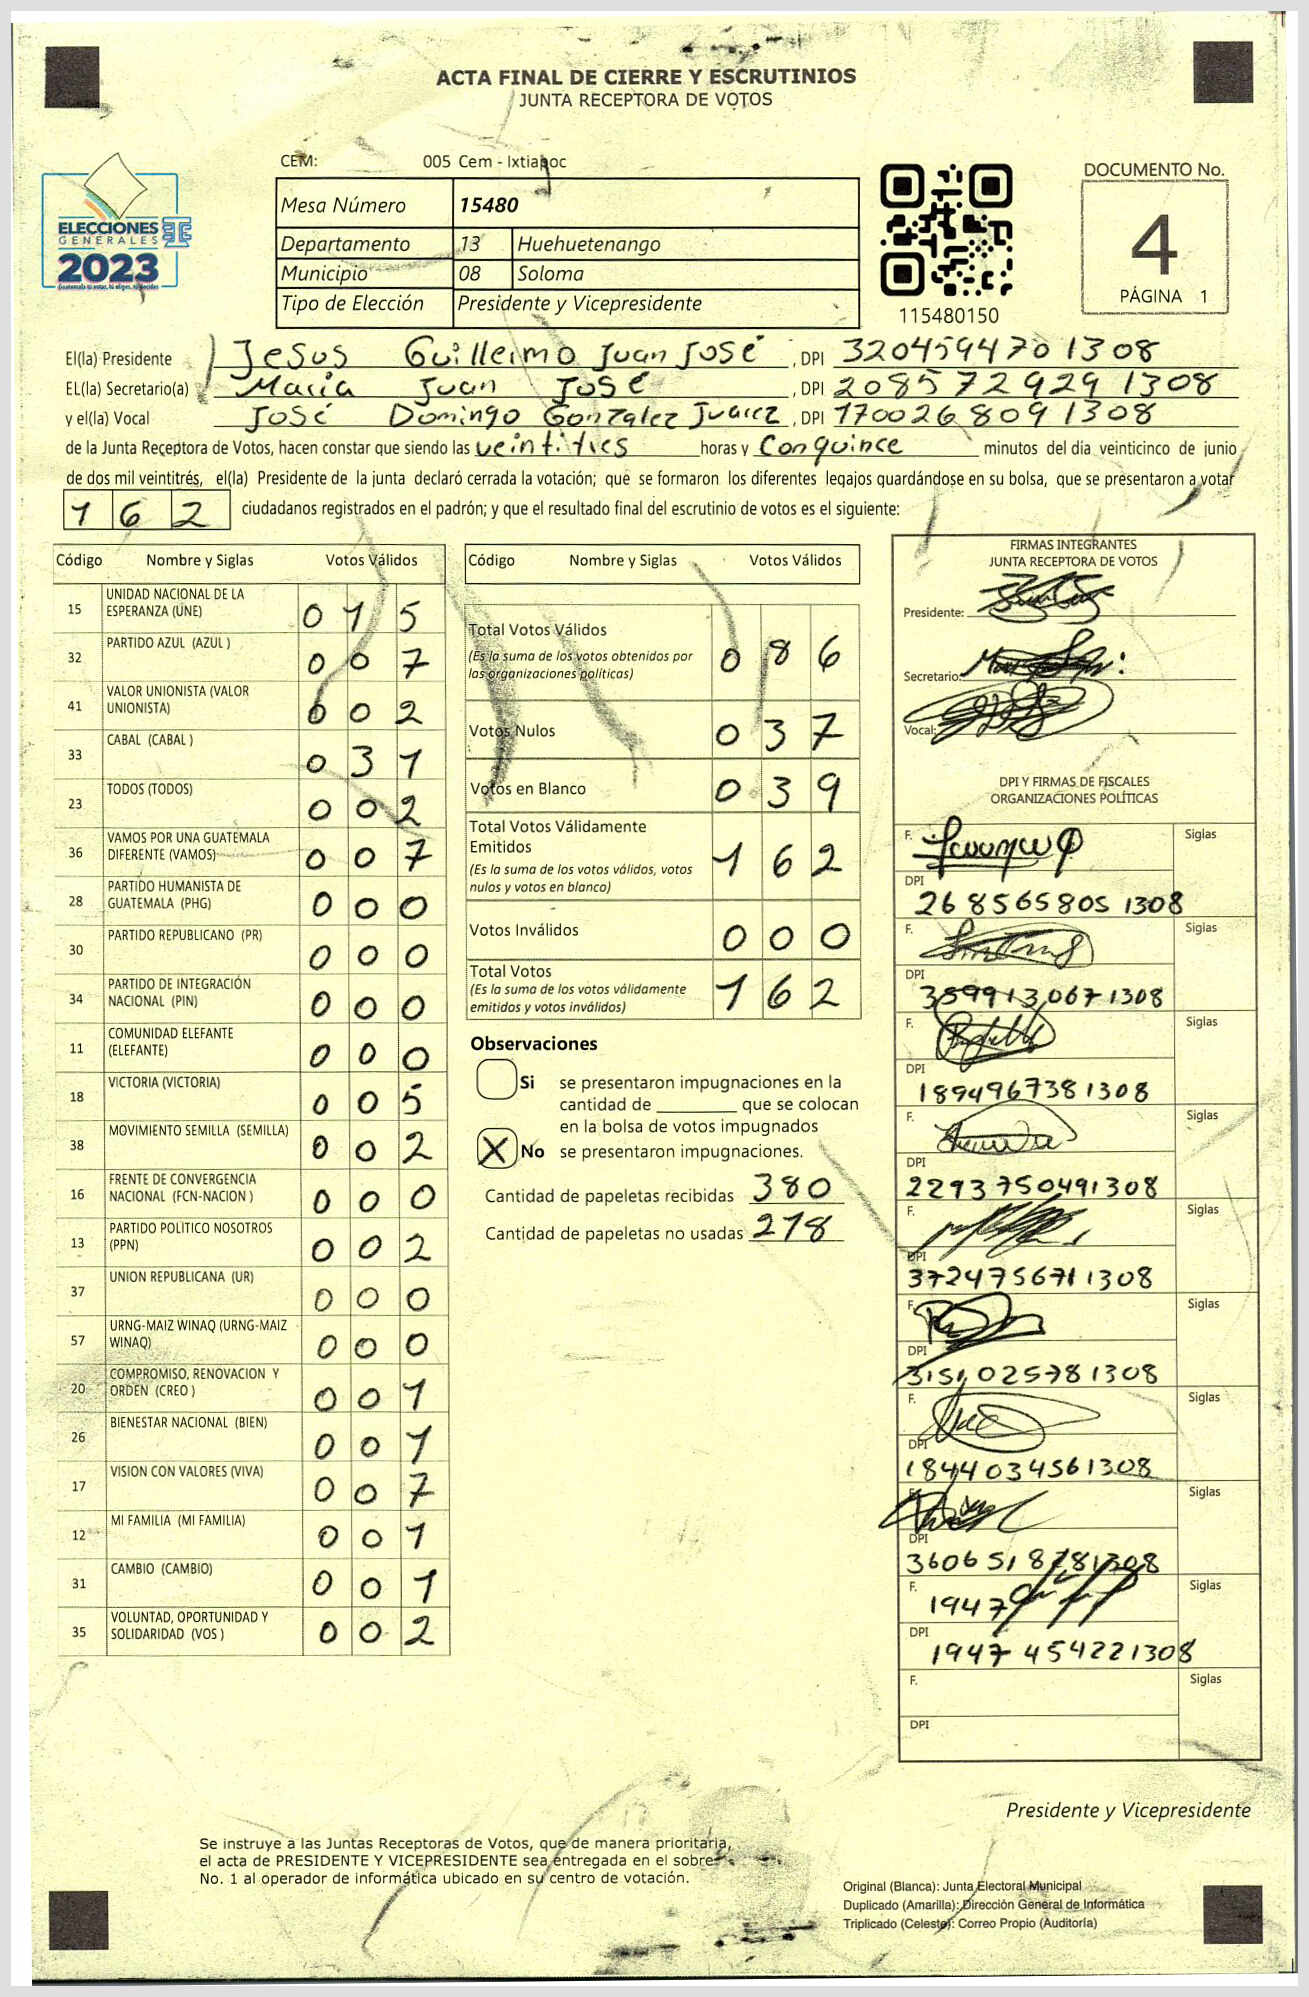 ACTA FINAL DE CIERRE Y ESCRUTINIOS
JUNTA RECEPTORA DE VOTOS
CEM: 005 Cem - Ixtiapoc
ELECCIONES
GENERALES
2023
Mesa Número 15480
Departamento 13 Huehuetenango
Municipio 08 Soloma
Tipo de Elección Presidente y Vicepresidente
115480150
DOCUMENTO No.
4
PÁGINA 1
El(la) Presidente Jesus Guillermo Juan José , DPI 3204594701308
EL(la) Secretario(a) Maria Juan José , DPI 2085729291308
y el(la) Vocal José Domingo Gonzalez Juarez , DPI 1700268091308
de la Junta Receptora de Votos, hacen constar que siendo las veintitres horas y Conquince minutos del día veinticinco de junio
de dos mil veintitrés, el(la) Presidente de la junta declaró cerrada la votación; que se formaron los diferentes legajos guardándose en su bolsa, que se presentaron a votar
162 ciudadanos registrados en el padrón; y que el resultado final del escrutinio de votos es el siguiente:
Código Nombre y Siglas Votos Válidos
15 UNIDAD NACIONAL DE LA ESPERANZA (UNE) 015
32 PARTIDO AZUL (AZUL ) 007
41 VALOR UNIONISTA (VALOR UNIONISTA) 002
33 CABAL (CABAL ) 031
23 TODOS (TODOS) 002
36 VAMOS POR UNA GUATEMALA DIFERENTE (VAMOS) 007
28 PARTIDO HUMANISTA DE GUATEMALA (PHG) 000
30 PARTIDO REPUBLICANO (PR) 000
34 PARTIDO DE INTEGRACIÓN NACIONAL (PIN) 000
11 COMUNIDAD ELEFANTE (ELEFANTE) 000
18 VICTORIA (VICTORIA) 005
38 MOVIMIENTO SEMILLA (SEMILLA) 002
16 FRENTE DE CONVERGENCIA NACIONAL (FCN-NACION ) 000
13 PARTIDO POLÍTICO NOSOTROS (PPN) 002
37 UNION REPUBLICANA (UR) 000
57 URNG-MAIZ WINAQ (URNG-MAIZ WINAQ) 000
20 COMPROMISO, RENOVACION Y ORDEN (CREO ) 001
26 BIENESTAR NACIONAL (BIEN) 001
17 VISION CON VALORES (VIVA) 007
12 MI FAMILIA (MI FAMILIA) 001
31 CAMBIO (CAMBIO) 001
35 VOLUNTAD, OPORTUNIDAD Y SOLIDARIDAD (VOS ) 002
Código Nombre y Siglas Votos Válidos
Total Votos Válidos 086
(Es la suma de los votos obtenidos por
las organizaciones políticas)
Votos Nulos 037
Votos en Blanco 039
Total Votos Válidamente
Emitidos 162
(Es la suma de los votos válidos, votos
nulos y votos en blanco)
Votos Inválidos 000
Total Votos 162
(Es la suma de los votos válidamente
emitidos y votos inválidos)
Observaciones
Si se presentaron impugnaciones en la
cantidad de ________ que se colocan
en la bolsa de votos impugnados
X No se presentaron impugnaciones.
Cantidad de papeletas recibidas 380
Cantidad de papeletas no usadas 218
FIRMAS INTEGRANTES
JUNTA RECEPTORA DE VOTOS
Presidente:
Secretario:
Vocal:
DPI Y FIRMAS DE FISCALES
ORGANIZACIONES POLÍTICAS
F. Siglas
DPI 2685658051308
F. Siglas
DPI 3599130671308
F. Siglas
DPI 1894967381308
F. Siglas
DPI 2293750491308
F. Siglas
DPI 3724756711308
F. Siglas
DPI 3151025781308
F. Siglas
DPI 1844034561308
F. Siglas
DPI 3606518781308
F. 1947 Siglas
DPI 1947454221308
F. Siglas
DPI
Presidente y Vicepresidente
Se instruye a las Juntas Receptoras de Votos, que de manera prioritaria,
el acta de PRESIDENTE Y VICEPRESIDENTE sea entregada en el sobre
No. 1 al operador de informática ubicado en su centro de votación.
Original (Blanca): Junta Electoral Municipal
Duplicado (Amarilla): Dirección General de Informática
Triplicado (Celeste): Correo Propio (Auditoría)